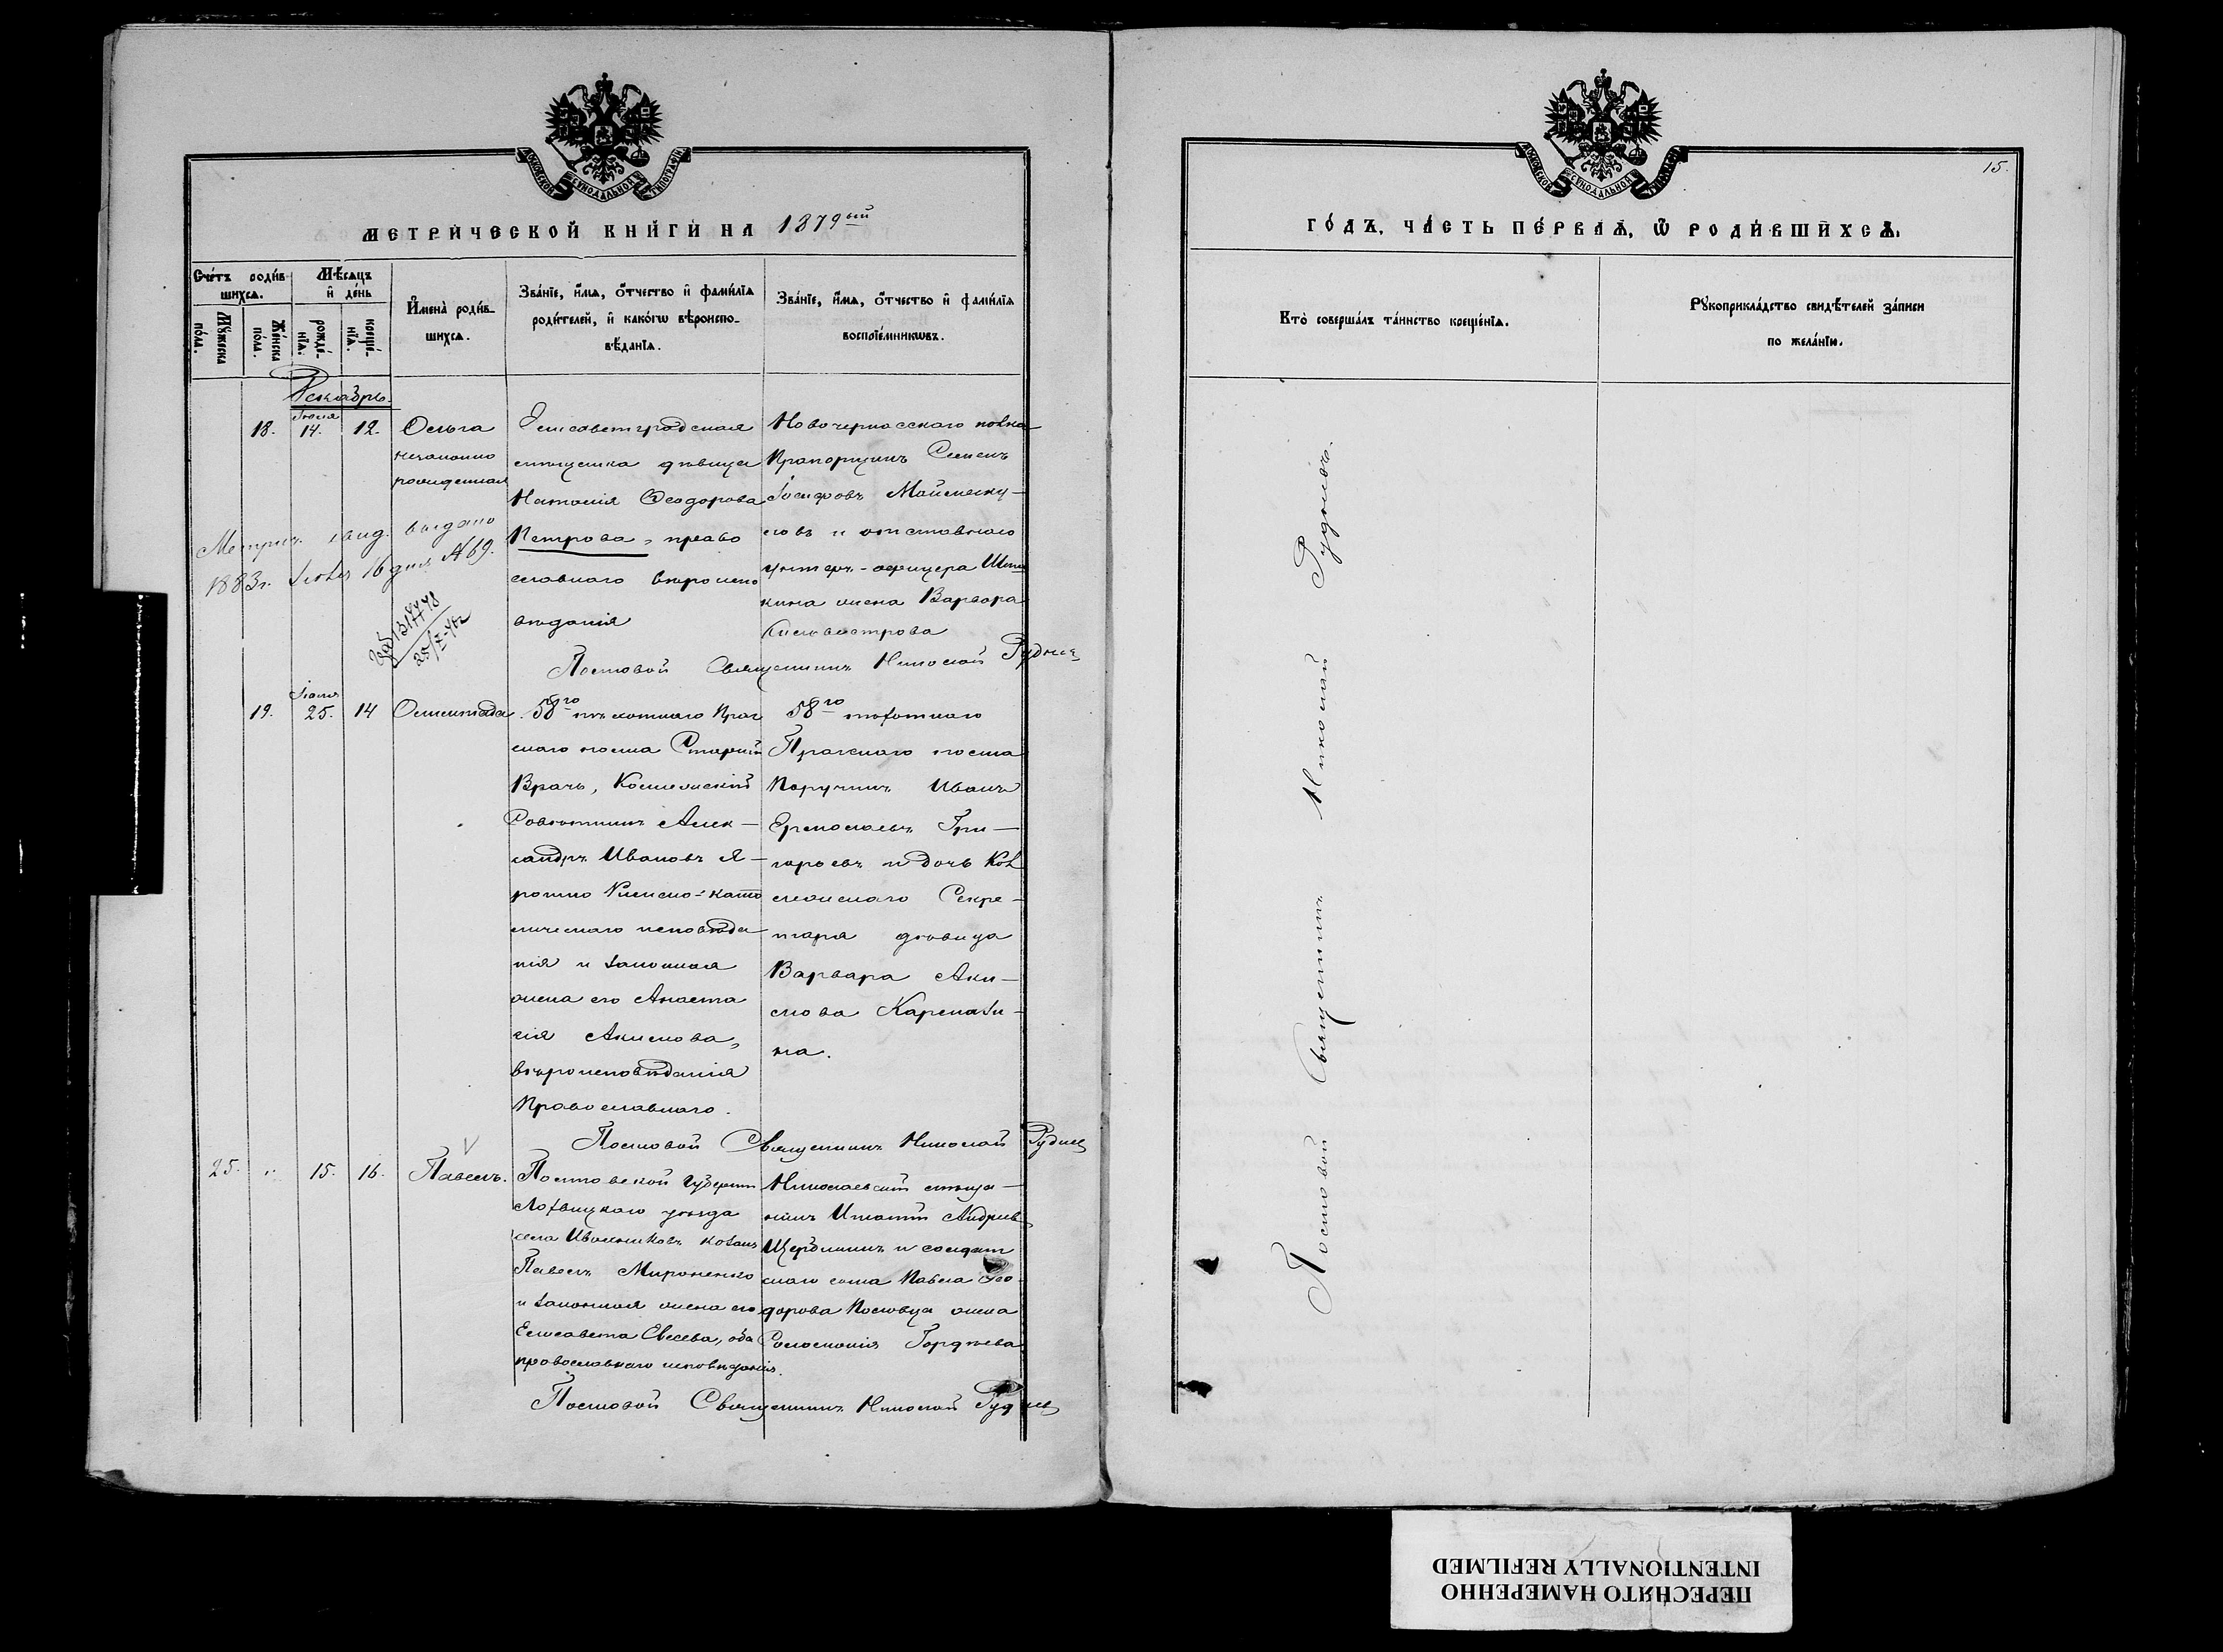 МОСКОВСКОЙ СѴНОДАЛЬНОЙ ТИПОГРАФІИ
МЕТРИ́ЧЕСКОЙ КНИ́ГИ НА 1879ый
Сче́тъ роди́вшихсѧ.
Мꙋ́жеска по́ла.
Же́нска по́ла.
Мѣ́сѧцъ и҆ де́нь
рожде́нїѧ.
креще́нїѧ.
И҆мена̀ роди́вшихсѧ.
Зва́нїе, и҆́мѧ, ѻ҆́тчество и҆ фами́лїѧ
роди́телей, и҆ како́гѡ вѣроиспо-
вѣ́данїѧ.
Зва́нїе, и҆́мѧ, ѻ҆́тчество и҆ фами́лїѧ
воспрїе́мникѡвъ.
Декабрь.
18. Іюня 14. 12. Ольга
незаконно
рожденная
Елисаветградская
мѣщанка дѣвица
Наталія Ѳеодорова
Петрова, право
славнаго вѣроиспо
вѣданія
Новочеркасскаго полка
Прапорщикъ Семенъ
Іосифовъ
и отставнаго
унтеръ-офицера
жена Варвара
Метрич. свид. выдано
1883г. 16 дня №69.
Полковой Священникъ Николай
19. 25. 14
58го пѣхотнаго Праг
скаго полка Старшій
Врачь, Коллежскій
Совѣтникъ Алек-
сандръ Ивановъ Я-
Римско-като
лическаго исповѣда
нія и законная
жена его Анаста
сія Акимова,
вѣроисповѣданія
Православнаго.
58го пѣхотнаго
Пражскаго полка
Поручикъ Иванъ
Ермолаевъ Гри-
горьевъ и дочь Кол
лежскаго Секре-
таря дѣвица
Варвара Аки-
мова Кармази-
на.
Полковой Священникъ Николай
25. „ 15. 16. Павелъ.
Полтавской губерніи
Лохвицкаго уѣзда
села козакъ
Павелъ Мироненко
и законная жена его
Елисавета Евсеева, оба
православнаго исповѣданія.
Николаевскій мѣща-
нинъ Игнатій Андреев
и солдат
скаго сына Павла Ѳео
дорова жена
Соломонія Гордѣева
Полковой Священникъ Николай
МОСКОВСКОЙ СѴНОДАЛЬНОЙ ТИПОГРАФІИ
15.
ГО́ДЪ, ЧА́СТЬ ПЕ́РВАѦ, Ѽ РОДИ́ВШИХСѦ.
Кто̀ соверша́лъ та́инство креще́нїѧ.
Рꙋкоприкла́дство свидѣ́телей за́писи
по жела́нїю.
Полковой Священникъ Николай
ПЕРЕСНЯТО НАМЕРЕННО
INTENTIONALLY REFILMED